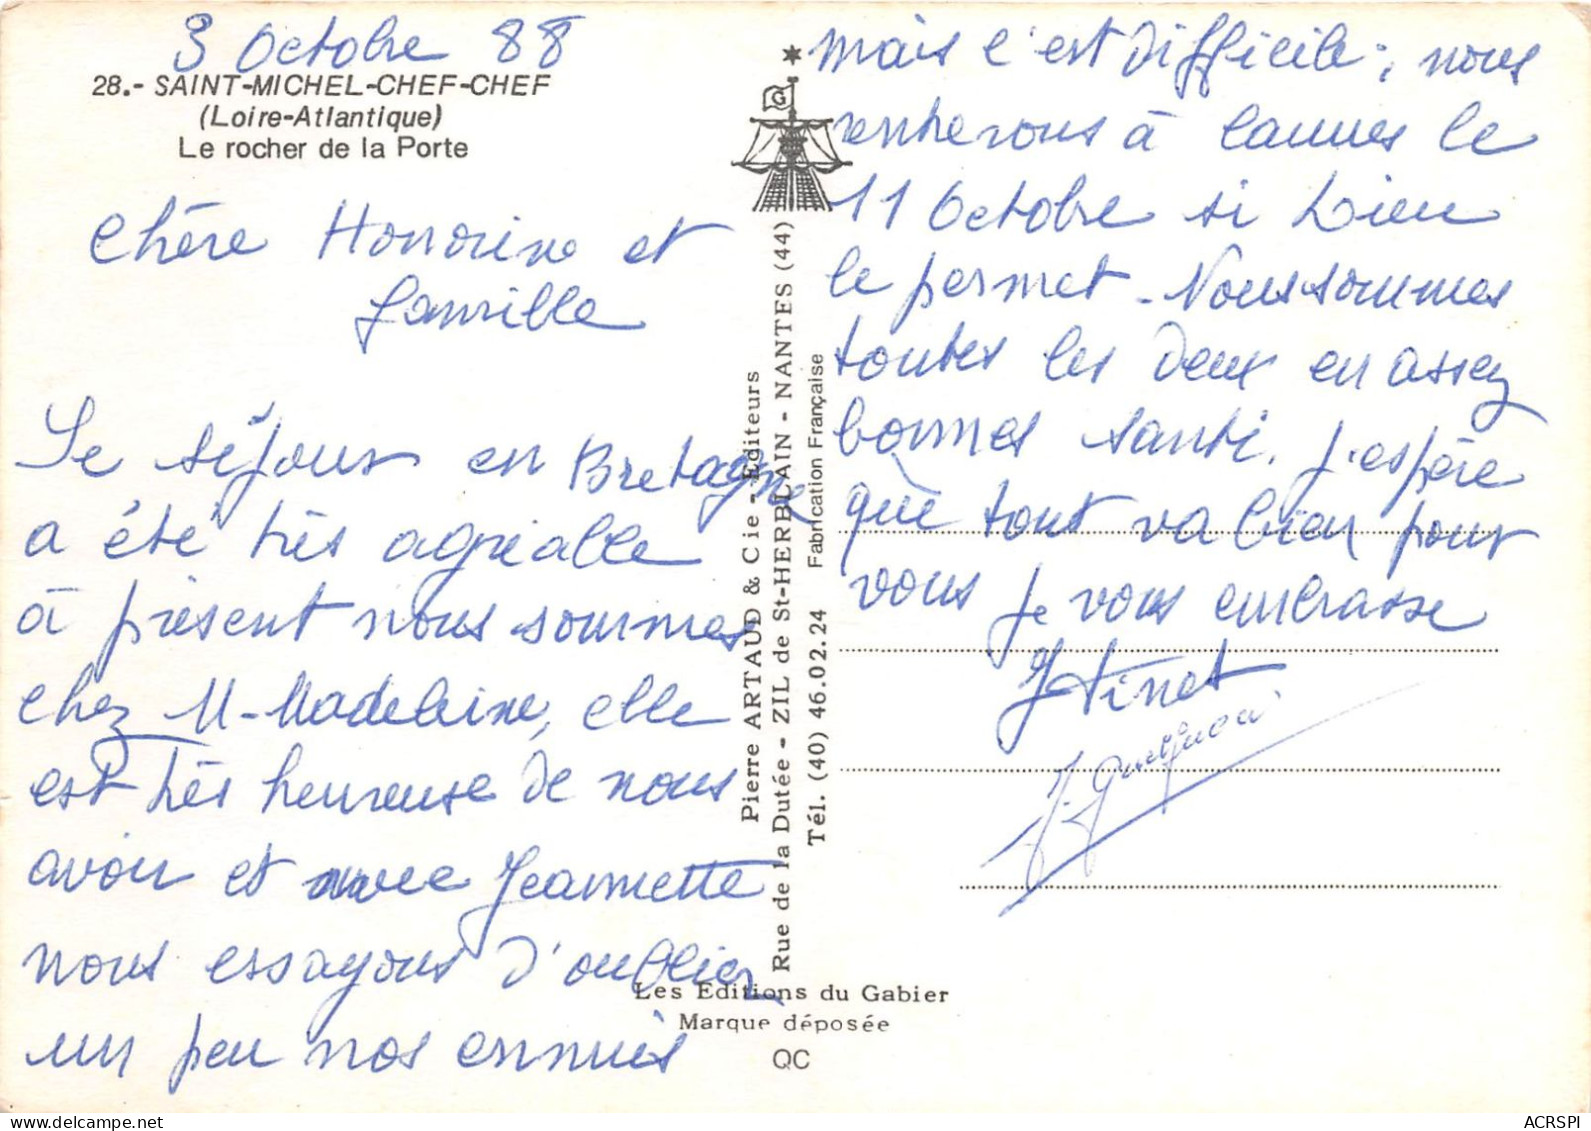 3 Octobre 88
28.- SAINT-MICHEL-CHEF-CHEF
(Loire-Atlantique)
Le rocher de la Porte
Chère Honorine et
famille
Le séjour en Bretagne
a été très agréable
à présent nous sommes
chez M-Madeleine, elle
est très heureuse de nous
avoir et avec Jeannette
nous essayons d'oublier
un peu nos ennuis
Pierre ARTAUD & Cie - Editeurs
Rue de la Dutée - ZIL de St-HERBLAIN - NANTES (44)
Tél. (40) 46.02.24 Fabrication Française
Les Editions du Gabier
Marque déposée
QC
G
mais c'est difficile; nous
rentrerons à Cannes le
11 Octobre si Dieu
le permet - Nous sommes
toutes les deux en assez
bonnes santé. J'espère
que tout va bien pour
vous je vous embrasse
ACRSPI